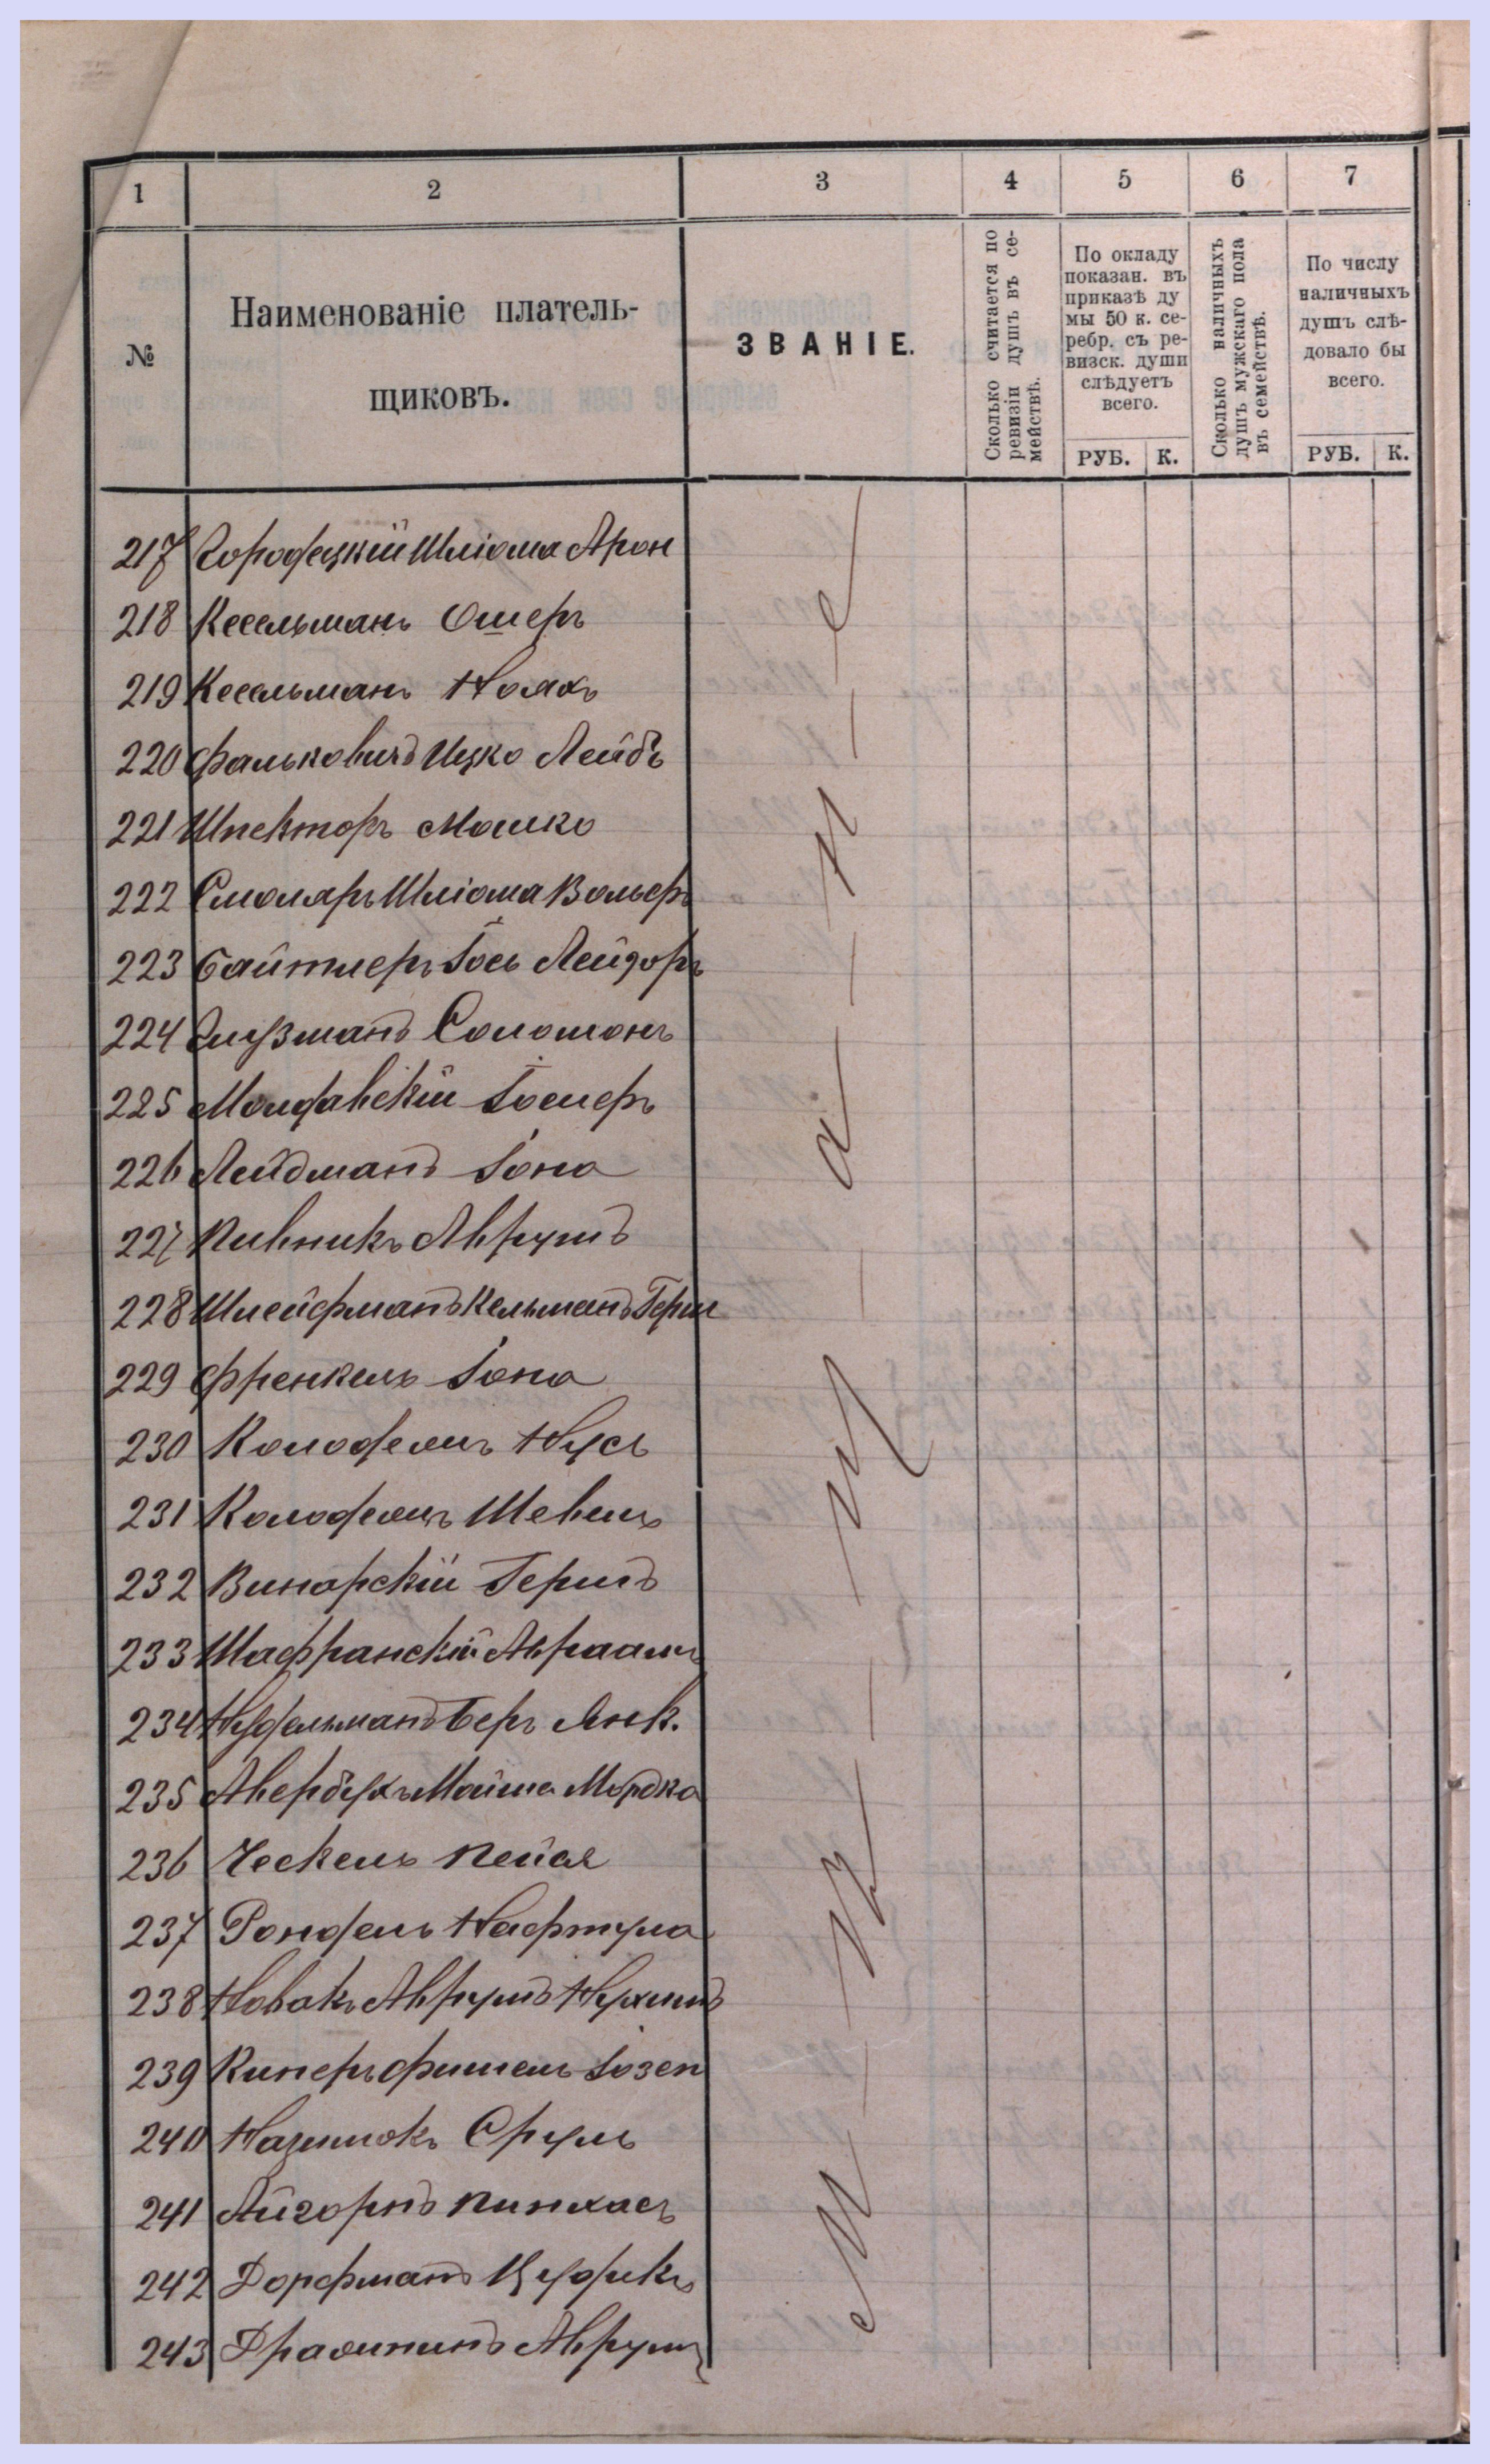 1 2 3 4 5 6 7
№
Наименованіе платель-
щиковъ.
ЗВАНІЕ.
Сколько считается по
ревизіи душъ въ се-
мействѣ.
По окладу
показан. въ
приказѣ ду
мы 50 к. се-
ребр. съ ре-
визск. души
слѣдуетъ
всего.
РУБ. К.
Сколько наличныхъ
душъ мужскаго пола
въ семействѣ.
По числу
наличныхъ
душъ слѣ-
довало бы
всего.
РУБ. К.
217 Городецкій Шліома Арон
218 Кесельманъ Ошеръ
219 Кесельманъ Нояхъ
220 Фальковичъ Ицко Лейбъ
221 Шпекторъ Мошко
222 Смоляръ Шліома Вольфъ
223 Байтлеръ Іось Лейзоръ
224 Глузманъ Соломонъ
225 Молдавскій Іосифъ
226 Лейдманъ Іона
227 Пивникъ Аврумъ
228 Шлейфманъ Кельманъ Герш
229 Френкель Іона
230 Колодезнъ Нусь
231 Колодезнъ Шевель
232 Винарскій Гершъ
233 Шафранскій Авраамъ
234 Нудельманъ Беръ Янк.
235 Авербухъ Мойше Мордко
236 Ческель Пейся
237 Рондель Нафтула
238 Новакъ Аврумъ Нухимъ
239 Киперъ Фишель Іозеп
240 Сруль
241 Айгорнъ Пинхасъ
242 Дорфманъ Цудикъ
243 Аврумъ
М-ѣ-щ-а-н-е